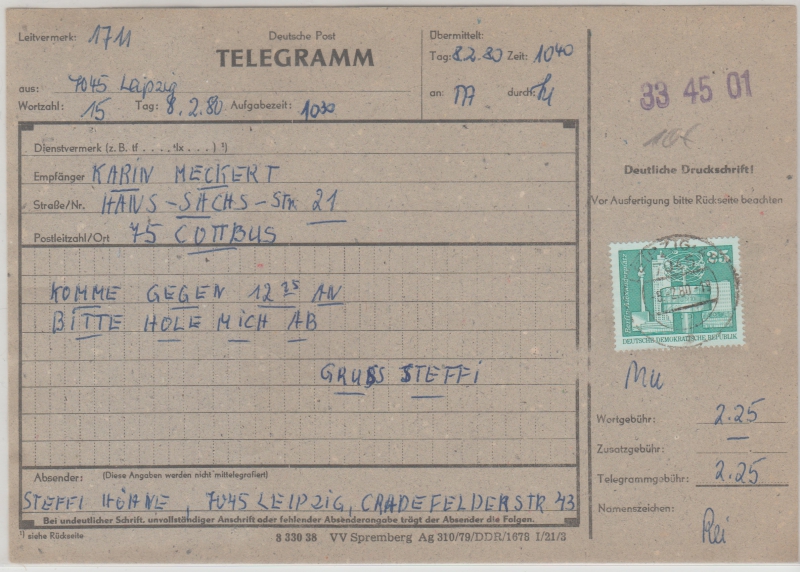 Leitvermerk: 1711
Deutsche Post
TELEGRAMM
aus: 7045 Leipzig
Wortzahl: 15 Tag: 8.2.80 Aufgabezeit: 1030
Übermittelt:
Tag: 8.2.80 Zeit: 1040
an: durch:
33 45 01
Deutliche Druckschrift!
Vor Ausfertigung bitte Rückseite beachten
Dienstvermerk (z. B. tf . . . . -lx . . . ) ¹)
Empfänger KARIN MECKERT
Straße/Nr. HANS-SACHS-Str. 21
Postleitzahl/Ort 75 COTTBUS
KOMME GEGEN 12 25 AN
BITTE HOLE MICH AB
GRUSS STEFFI
DEUTSCHE DEMOKRATISCHE REPUBLIK
Mu
Wortgebühr: 2.25
Zusatzgebühr: —
Telegrammgebühr: 2.25
Namenszeichen: Rei
Absender: (Diese Angaben werden nicht mittelegrafiert)
STEFFI HÖHNE, 7045 LEIPZIG, CRADEFELDERSTR 43
Bei undeutlicher Schrift, unvollständiger Anschrift oder fehlender Absenderangabe trägt der Absender die Folgen.
¹) siehe Rückseite
8 330 38 VV Spremberg Ag 310/79/DDR/1678 I/21/3